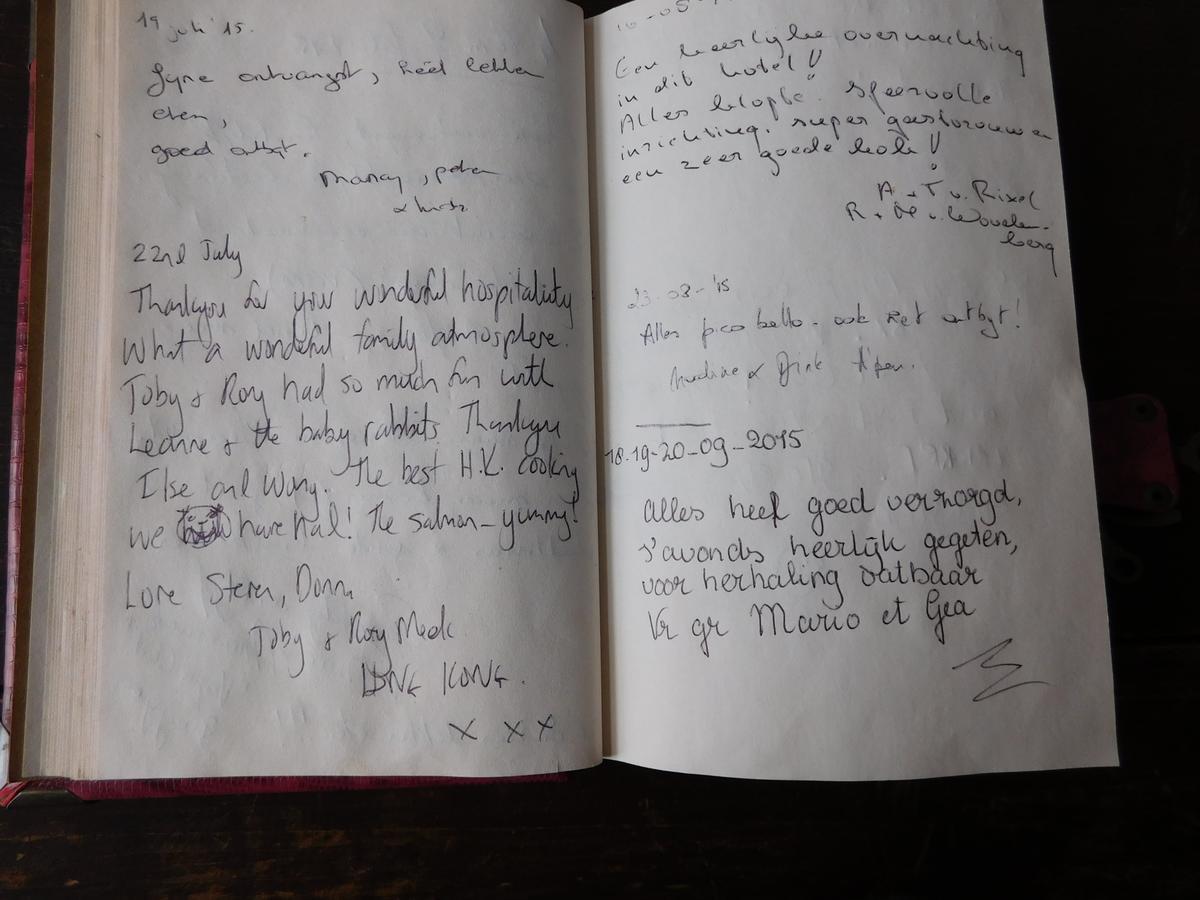 19 juli '15.
Fijne ontvangst, heel lekker
eten,
goed ontbijt.
22nd July
Thankyou for your wonderful hospitaliuty
What a wonderful family atmosphere.
Toby & Rory had so much fun with
Leanne & the baby rabbits. Thankyou
Ilse and Wang. The best H.K. cooking
we have had! The salmon - yummy!
Love Steven, Donna
Toby & Rory Meek
HONG KONG.
x x x
Een heerlijke overnachting
in dit hotel!!
Alles klopte. sfeervolle
inrichting. super gastvrouw en
een zeer goede kok!!
A + T v. Rixel
R + M v. Wouden-
berg
23-08-'15
Alles pico bello - ook het ontbijt!
18-19-20-09-2015
alles heel goed verzorgd,
s'avonds heerlijk gegeten,
voor herhaling vatbaar
Vr gr Mario et Gea